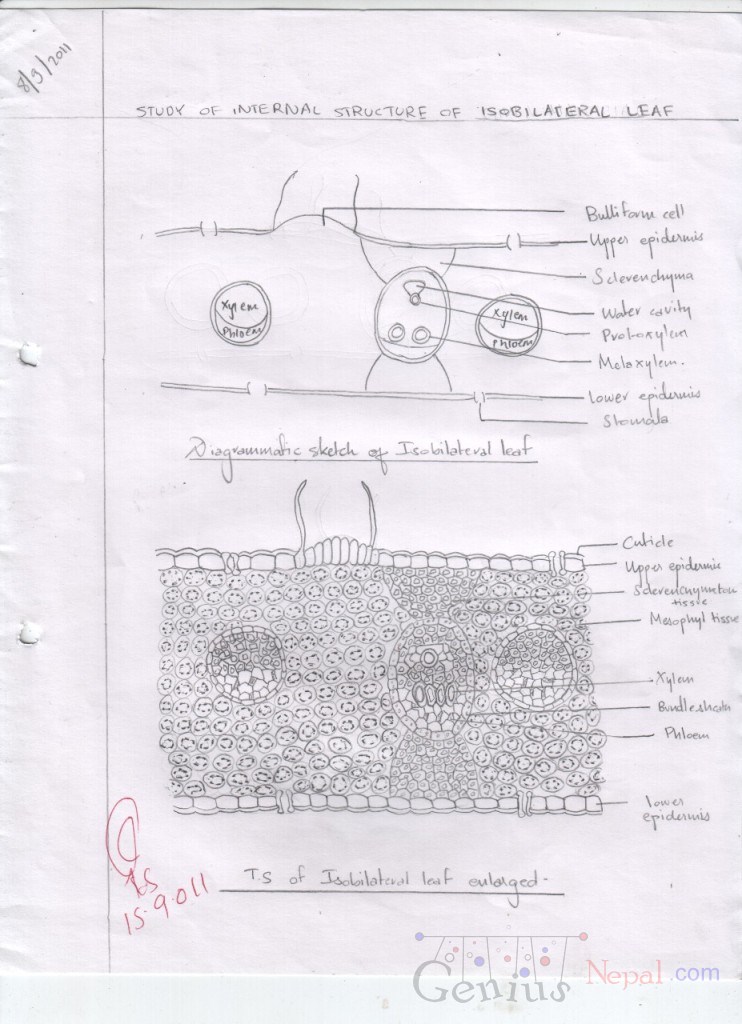 8/9/2011
STUDY OF INTERNAL STRUCTURE OF ISOBILATERAL LEAF
Bulliform cell
Upper epidermis
Sclerenchyma
Water cavity
Protoxylem
Metaxylem.
Lower epidermis
Stomata
Xylem
Phloem
Xylem
Phloem
Diagrammatic sketch of Isobilateral leaf
Cuticle
Upper epidermis
tissue
Mesophyl tissue
Xylem
Phloem
lower
epidermis
T.S of Isobilateral leaf enlarged-
15.9.011
Genius Nepal.com